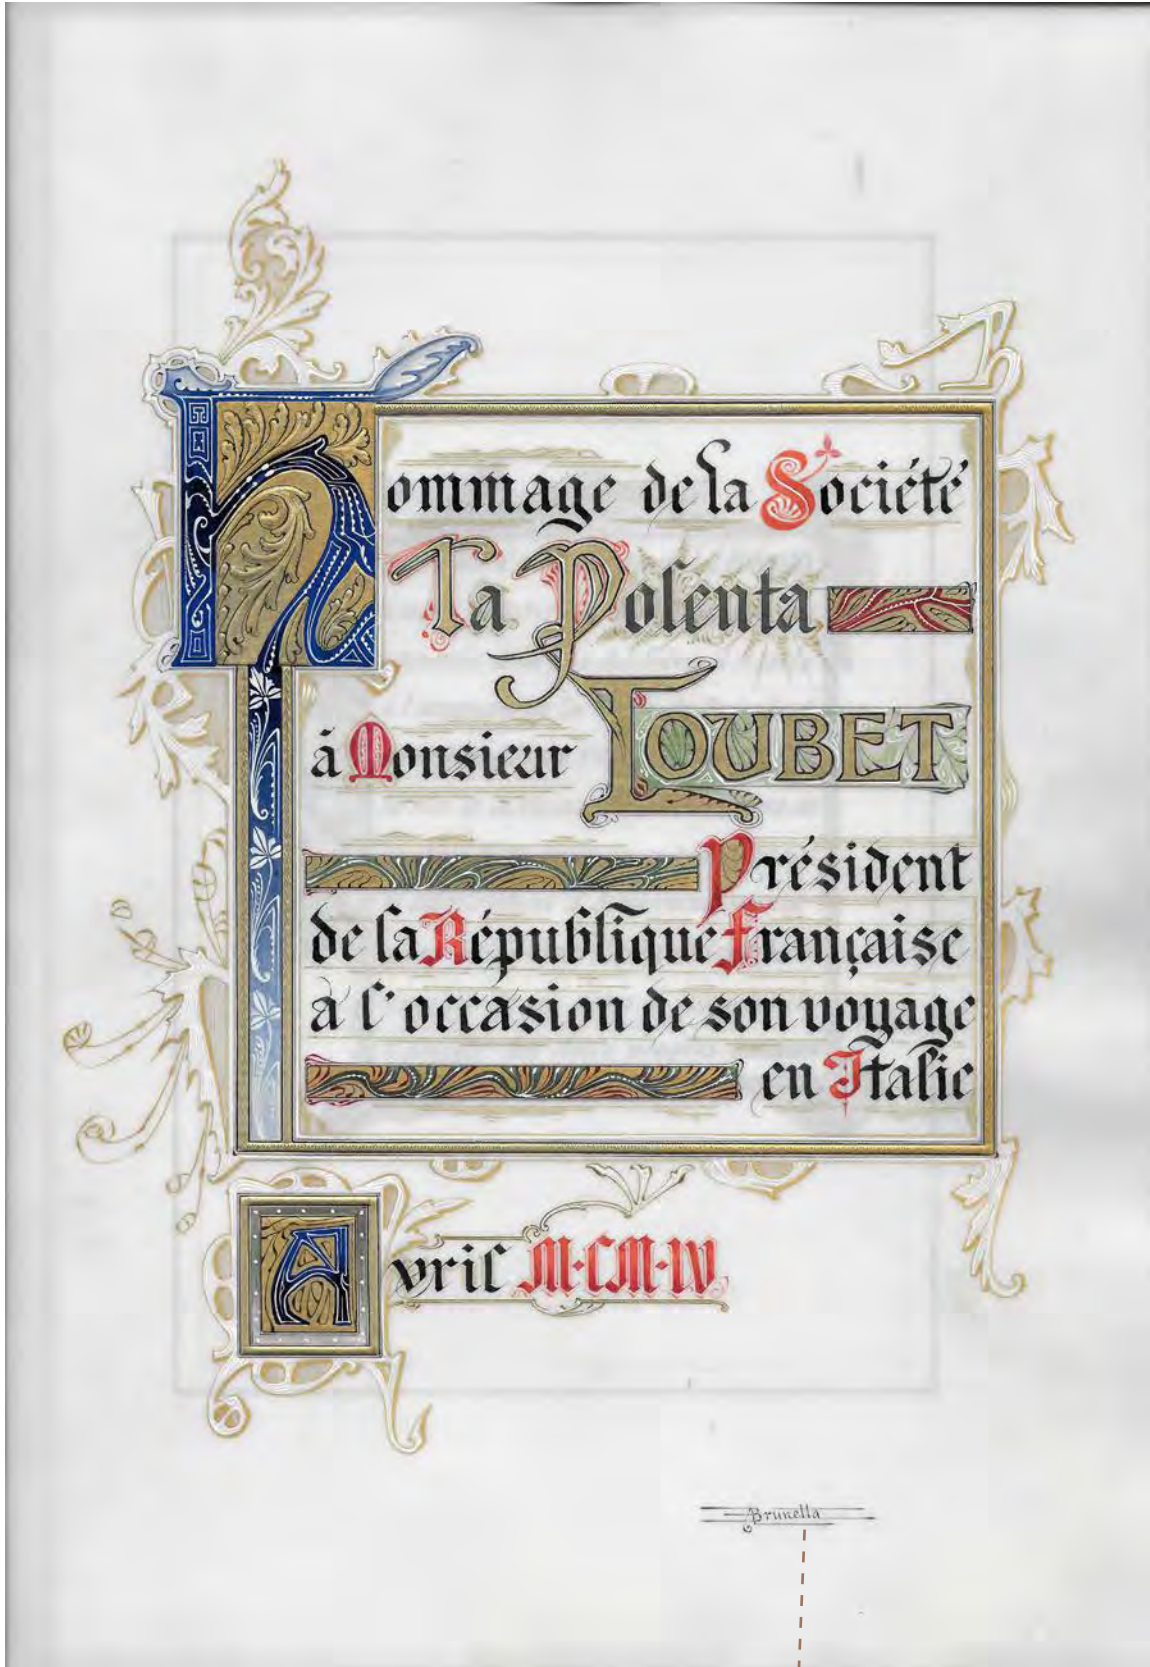 Hommage de la Société
La Polenta
à Monsieur LOUBET
Président
de la République Française
à l'occasion de son voyage
en Italie
Avril M·CM·IV
Brunetta